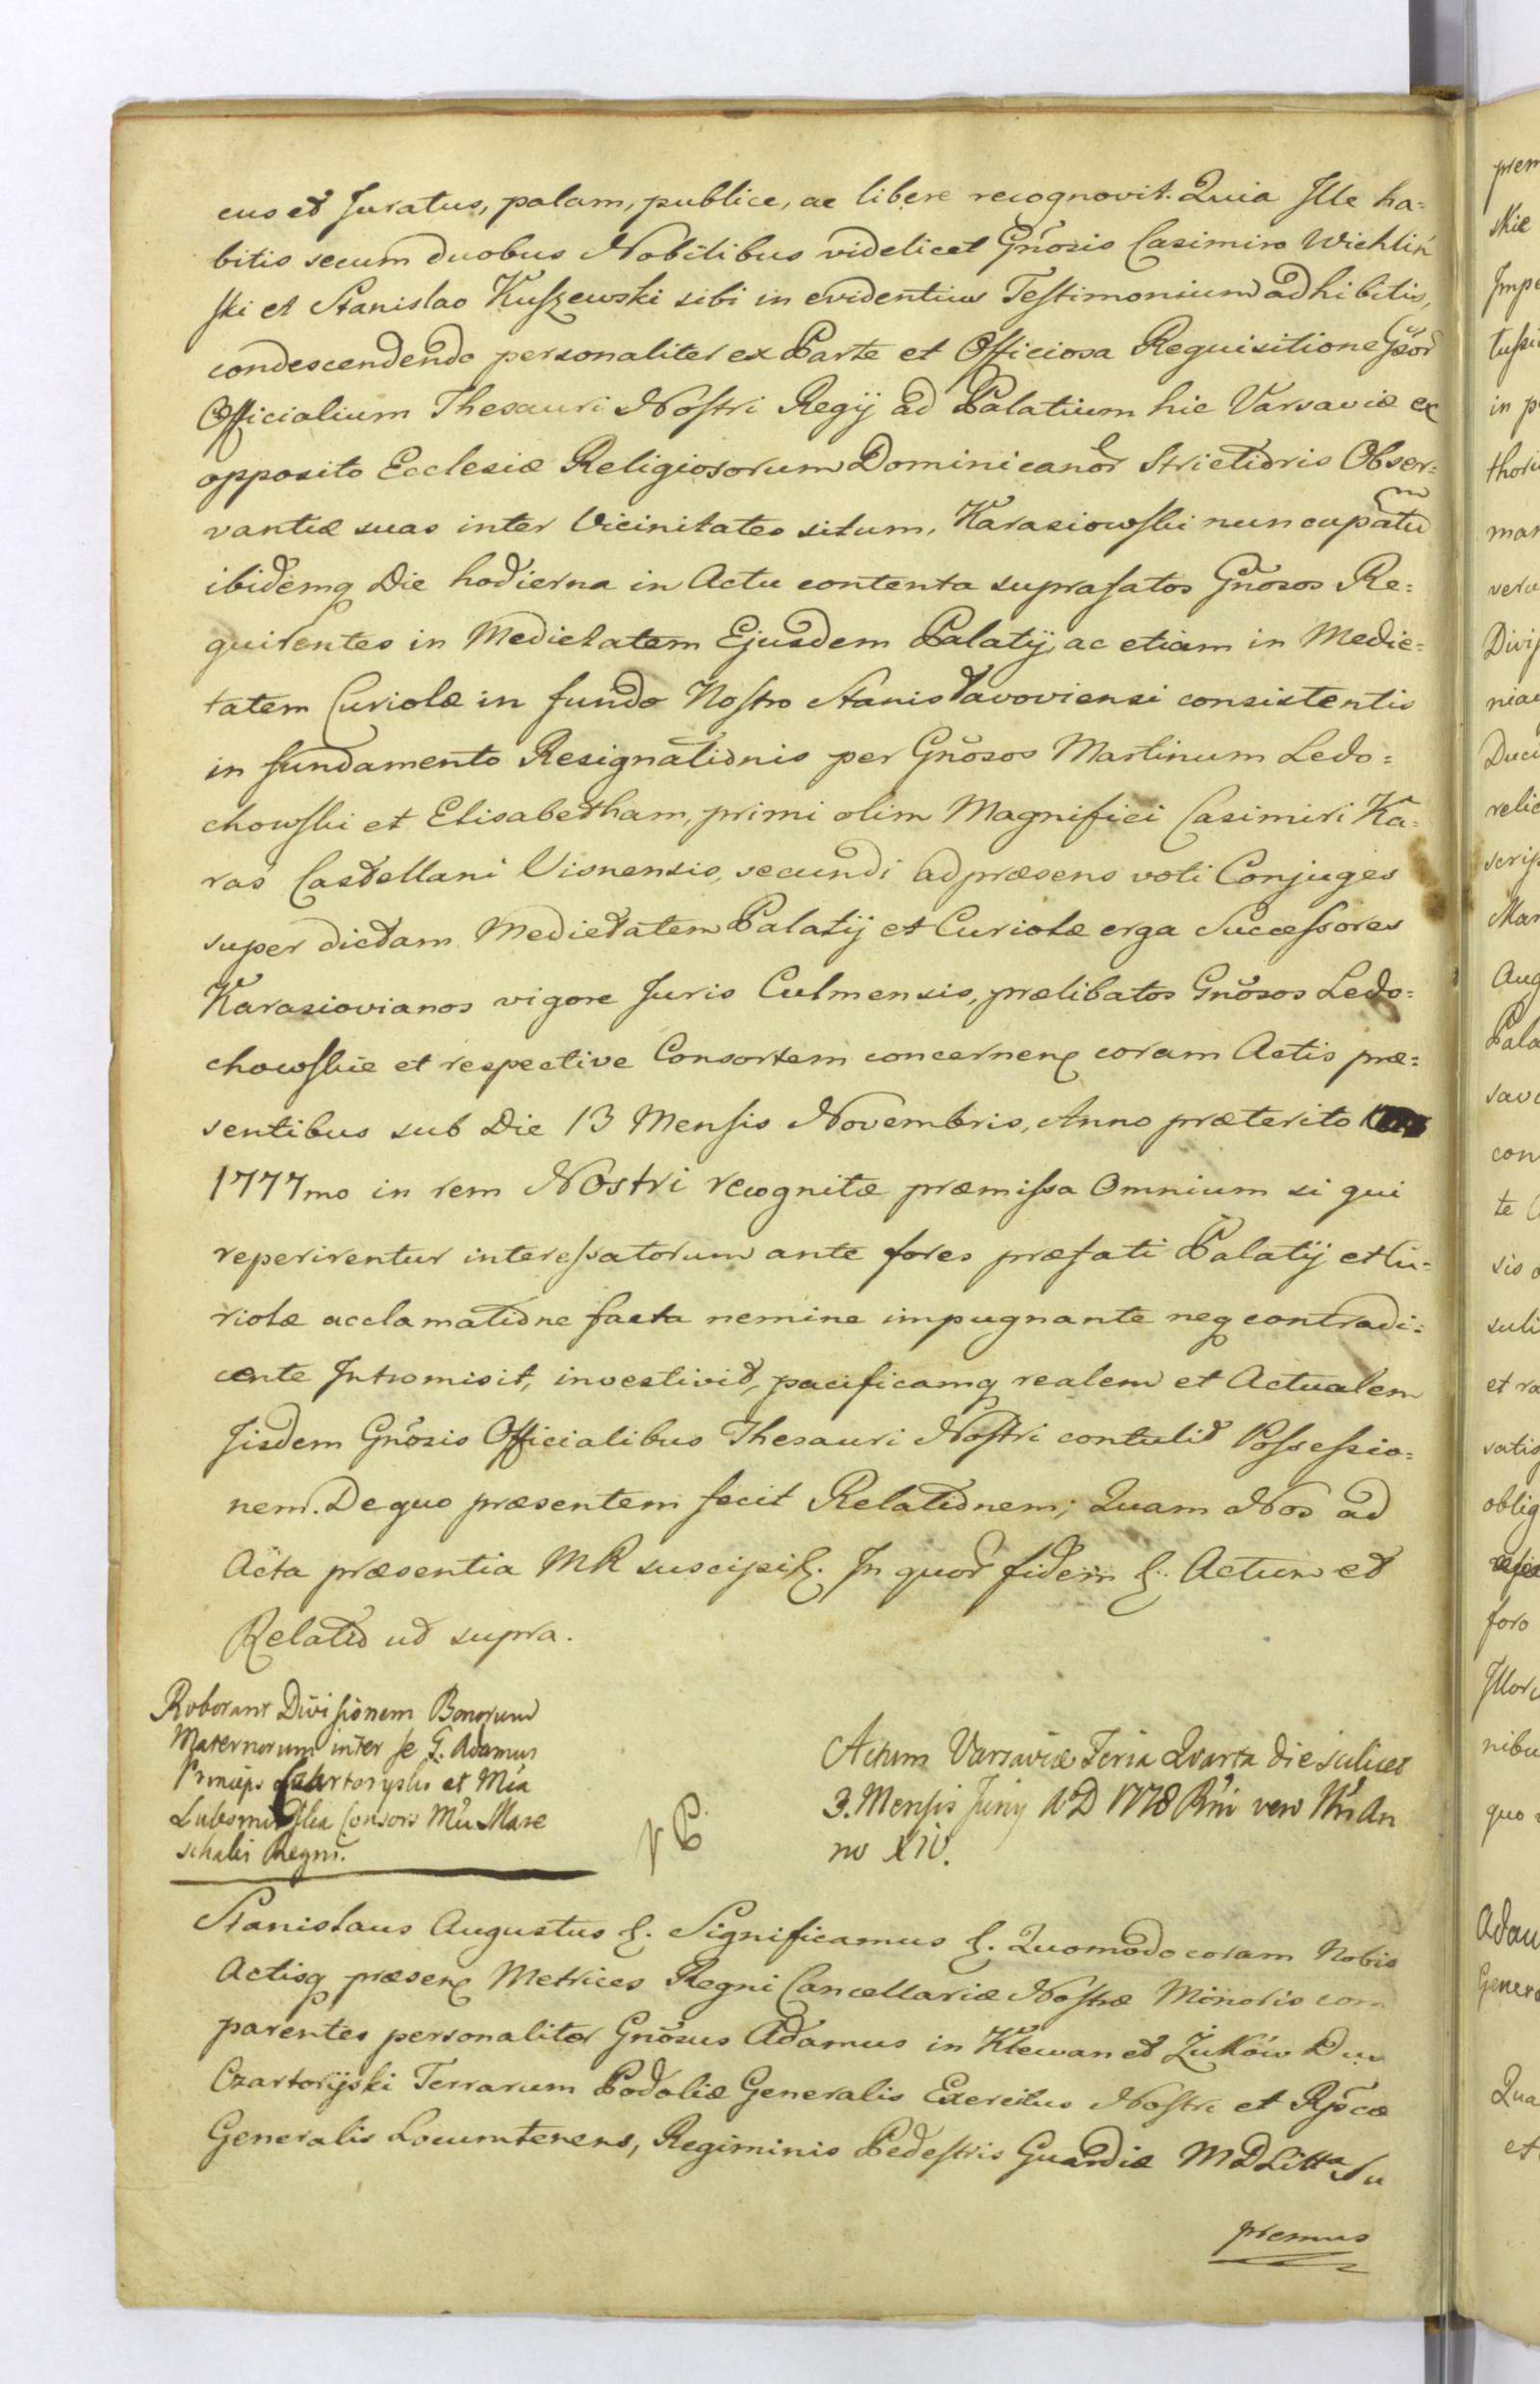 cus et Juratus, palam, publice, ac libere recognovit. Quia Ille ha=
bitis secum duobus Nobilibus videlicet Gñosis Casimiro Wichliń
ski et Stanislao Kuszewski sibi in evidentius Testimonium adhibitis,
condescendendo personaliter ex Parte et Officiosa Requisitione Gñsor
Officialium Thesauri Nostri Regij ad Palatium hic Varsaviæ ex
opposito Ecclesiæ Religiosorum Dominicanor Strictioris Obser=
vantiæ suas inter Vicinitates situm, Karasiowski nuncupatũ
ibidemq Die hodierna in Actu contenta suprafatos Gñosos Re=
quirentes in Medietatem Ejusdem Palatij, ac etiam in Medie=
tatem Curiolæ in fundo Nostro Stanisławoviensi consistentis
in fundamento Resignationis per Gñosos Martinum Ledo=
chowski et Elisabetham, primi olim Magnifici Casimiri Ka=
raś Castellani Visnensis, secundi ad præsens voti Conjuges
super dictam Medietatem Palatij et Curiolæ erga Successores
Karasiovianos vigore Juris Culmensis, prælibatos Gñosos Ledo=
chowskie et respective Consortem concernenę coram Actis præ=
sentibus sub Die 13 Mensis Novembris, Anno præterito
1777mo in rem Nostri recognitæ præmissa Omnium si qui
reperirentur interessatorum ante fores præfati Palatij et Cu=
riolæ acclamatione facta nemine impugnante neq contradi=
cente Intromisit, investivit, pacificamq realem et Actualem
Iisdem Gñosis Officialibus Thesauri Nostri contulit Possessio=
nem. De quo præsentem fecit Relationem; Quam Nos ad
Acta præsentia MR suscipi&. In quor fidem &. Actum et
Relatio ut supra.
Roborant Divisionem Bonorum
Maternorum inter se G. Adamus
Princeps Czartoryski et Mĩa
Lubomirska Consors Mci Mare
schalci Regni.
Actum Varsaviæ Feria Quarta die scilicet
3. Mensis Junij AD 1778 Rñi vero Nri An
no XIV.
Stanislaus Augustus &. Significamus &. Quomodo coram Nobis
Actisq præsenę Metrices Regni Cancellariæ Nostræ Minoris com
parentes personaliter Gñosus Adamus in Klewan et Żuków Dux
Czartoryski Terrarum Podoliæ Generalis Exercitus Nostri et Rpscæ
Generalis Locumtenens, Regiminis Pedestris Guardiæ MDLitta Su
premus